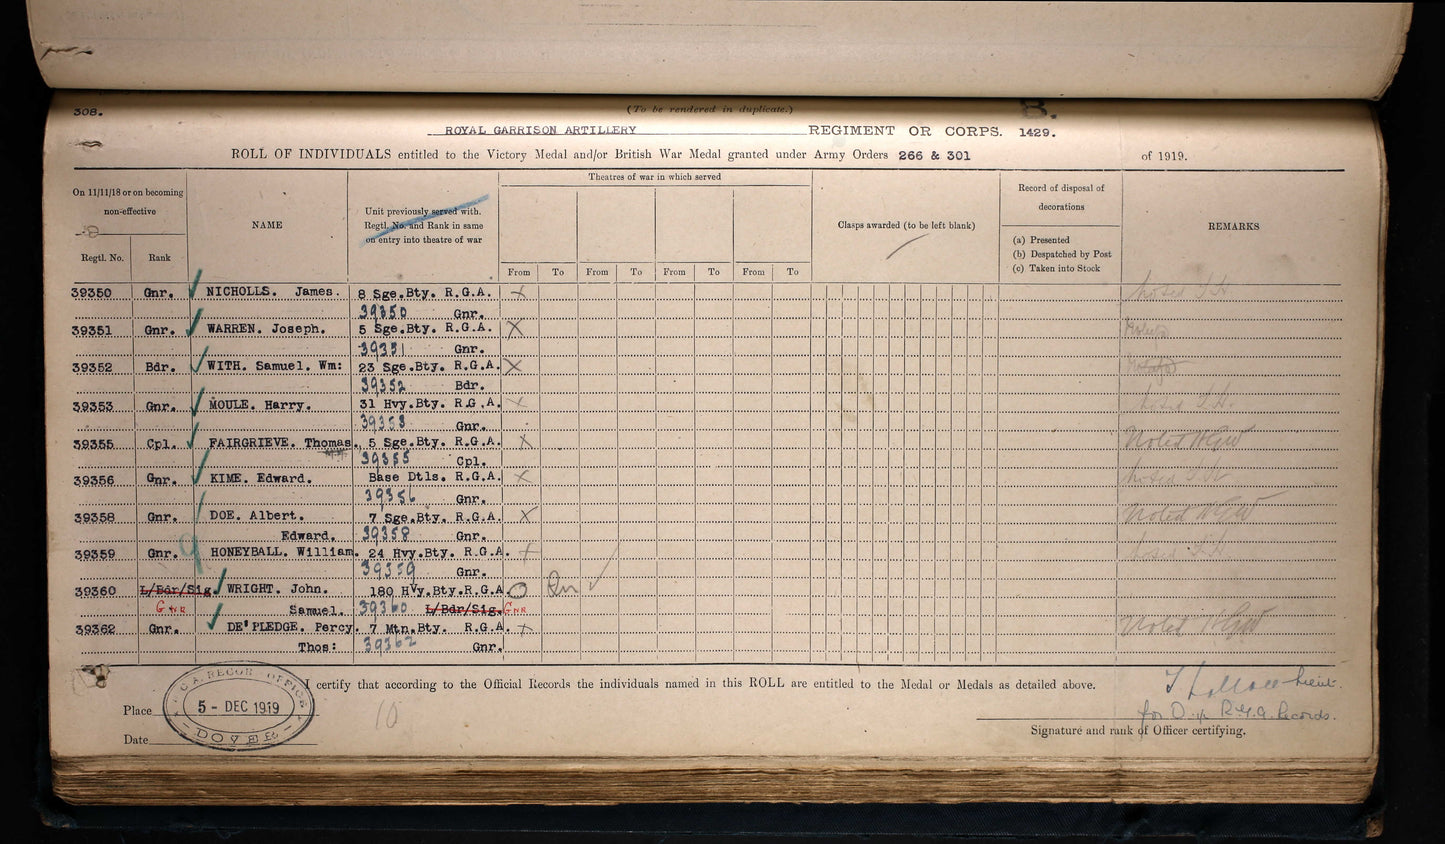 308.
(To be rendered in duplicate.)
B.
ROYAL GARRISON ARTILLERY REGIMENT OR CORPS. 1429.
ROLL OF INDIVIDUALS entitled to the Victory Medal and/or British War Medal granted under Army Orders 266 & 301 of 1919.
On 11/11/18 or on becoming non-effective
Regtl. No.
Rank
NAME
Unit previously served with.
Regtl. No. and Rank in same
on entry into theatre of war
Theatres of war in which served
From To From To From To From To
Clasps awarded (to be left blank)
Record of disposal of
decorations
(a) Presented
(b) Despatched by Post
(c) Taken into Stock
REMARKS
39350 Gnr. NICHOLLS. James. 8 Sge.Bty. R.G.A. X Noted
39350 Gnr.
39351 Gnr. WARREN. Joseph. 5 Sge.Bty. R.G.A. X
39351 Gnr.
39352 Bdr. WITH. Samuel. Wm: 23 Sge.Bty. R.G.A. X
39352 Bdr.
39353 Gnr. MOULE. Harry. 31 Hvy.Bty. R.G.A. X Noted
39353 Gnr.
39355 Cpl. FAIRGRIEVE. Thomas. 5 Sge.Bty. R.G.A. X Noted WGW
39355 Cpl.
39356 Gnr. KIME. Edward. Base Dtls. R.G.A. X Noted
39356 Gnr.
39358 Gnr. DOE. Albert. 7 Sge.Bty. R.G.A. X Noted WGW
Edward. 39358 Gnr.
39359 Gnr. HONEYBALL. William. 24 Hvy.Bty. R.G.A. X Noted
39359 Gnr.
39360 L/Bdr/Sig. WRIGHT. John. 180 Hvy.Bty.R.G.A. O
GNR Samuel. 39360 L/Bdr/Sig. GNR
39362 Gnr. DE'PLEDGE. Percy. 7 Mtn.Bty. R.G.A. X Noted WGW
Thos: 39362 Gnr.
I certify that according to the Official Records the individuals named in this ROLL are entitled to the Medal or Medals as detailed above.
Place
Date
R.G.A. RECORD OFFICE
5 - DEC 1919
DOVER
10
Lieut.
for O. i/c R.G.A. Records.
Signature and rank of Officer certifying.